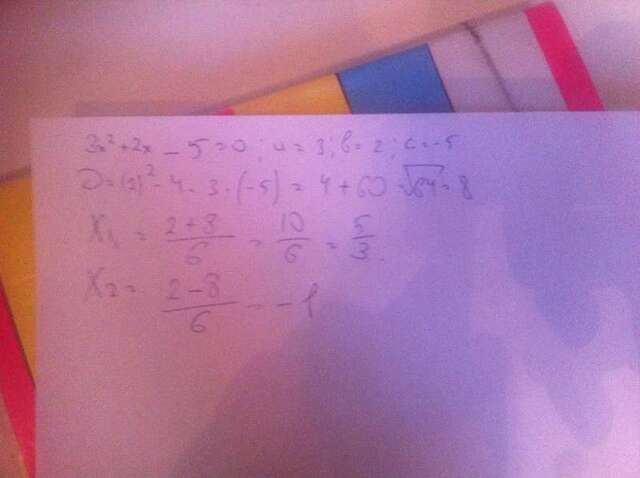 3x² + 2x - 5 = 0; a = 3; b = 2; c = -5
D = (2)² - 4 · 3 · (-5) = 4 + 60 = √64 = 8
X₁ = (2+8)/6 = 10/6 = 5/3.
X₂ = (2-8)/6 = -1